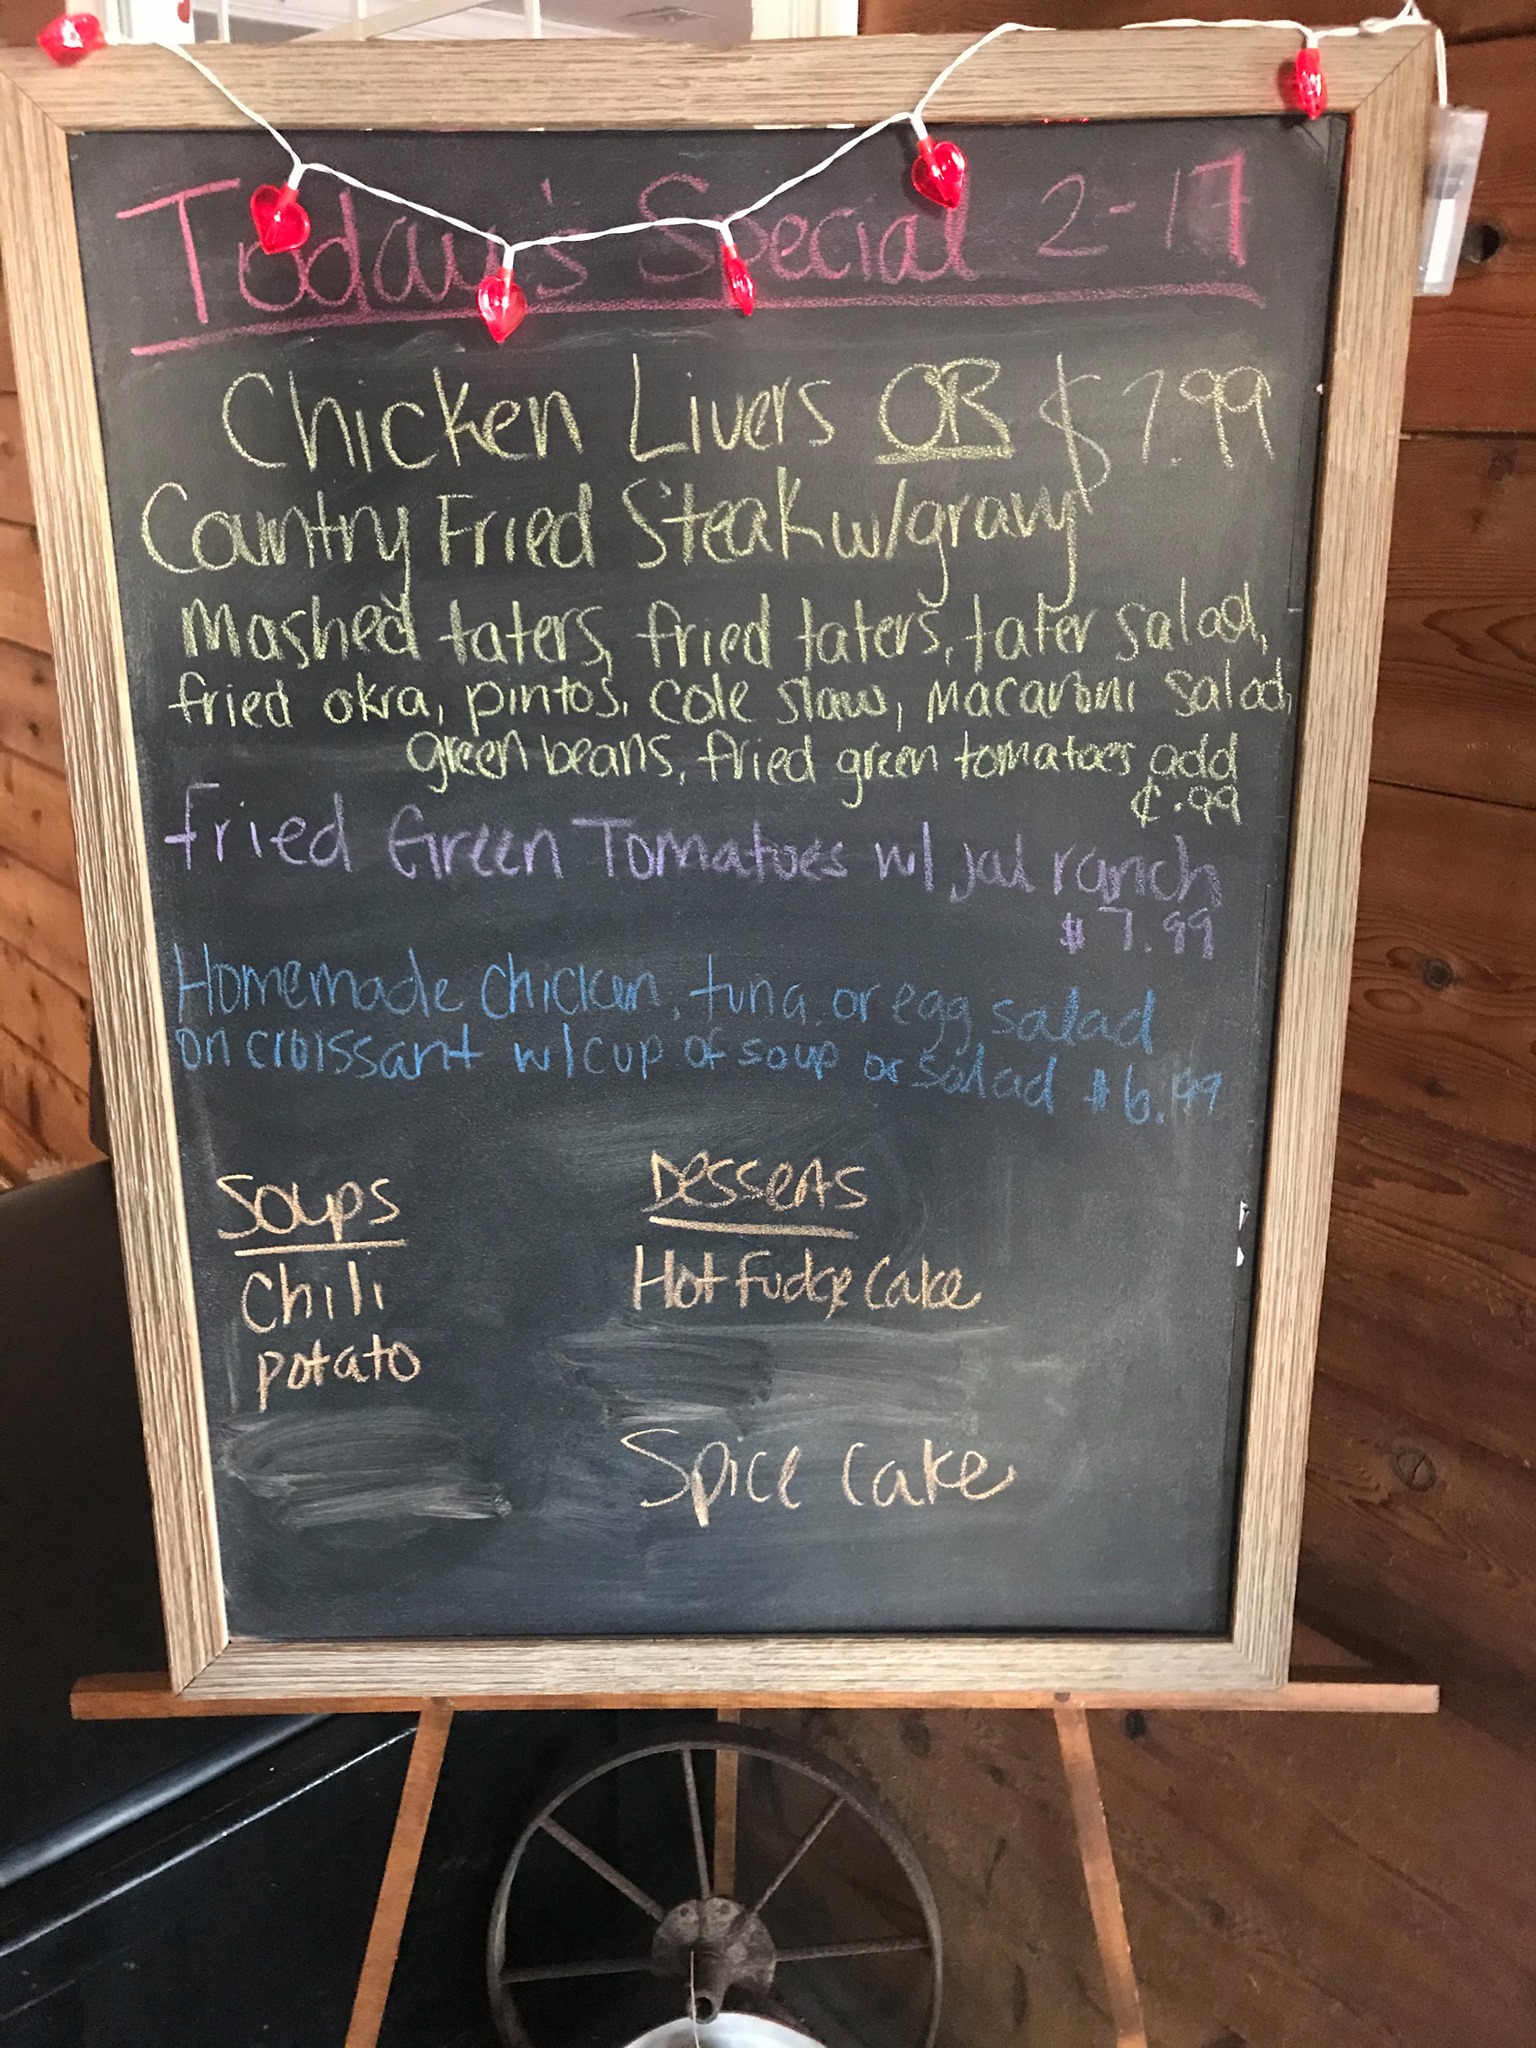 Today's Special 2-17
Chicken Livers OR $7.99
Country Fried Steak w/gravy
Mashed taters, fried taters, tater salad,
fried okra, pintos, cole slaw, macaroni salad,
green beans, fried green tomatoes add
¢.99
Fried Green Tomatoes w/ jal ranch
$7.99
Homemade chicken, tuna, or egg salad
on croissant w/cup of soup or salad $6.99
Soups
Chili
potato
Desserts
Hot Fudge Cake
Spice Cake